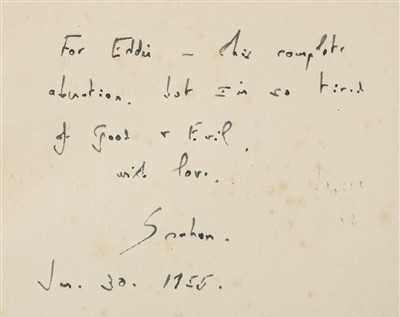 For Eddie – this complete
aberration, but I'm so tired
of Good & Evil.
with love.
Graham.
Jan. 30. 1955.